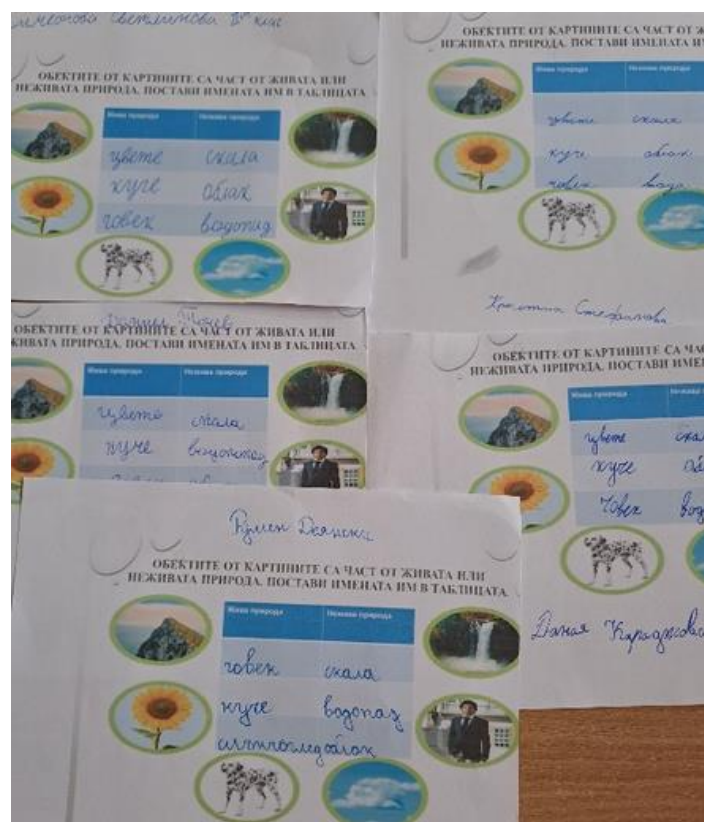 Светлинова II клас
ОБЕКТИТЕ ОТ КАРТИНИТЕ СА ЧАСТ ОТ ЖИВАТА ИЛИ
НЕЖИВАТА ПРИРОДА. ПОСТАВИ ИМЕНАТА ИМ В ТАБЛИЦАТА
Жива природа Нежива природа
цвете скала
куче облак
човек водопад
ОБЕКТИТЕ ОТ КАРТИНИТЕ СА ЧАСТ ОТ
НЕЖИВАТА ПРИРОДА. ПОСТАВИ ИМЕНАТА
Жива природа Нежива природа
цвете скала
куче облак
човек вода
Стефанова
ОБЕКТИТЕ ОТ КАРТИНИТЕ СА ЧАСТ ОТ ЖИВАТА ИЛИ
ЖИВАТА ПРИРОДА. ПОСТАВИ ИМЕНАТА ИМ В ТАБЛИЦАТА
Жива природа Нежива природа
цвете скала
куче
ОБЕКТИТЕ ОТ КАРТИНИТЕ СА
НЕЖИВАТА ПРИРОДА. ПОСТАВИ
Жива природа Нежива
цвете
куче
Човек
Даная
ОБЕКТИТЕ ОТ КАРТИНИТЕ СА ЧАСТ ОТ ЖИВАТА ИЛИ
НЕЖИВАТА ПРИРОДА. ПОСТАВИ ИМЕНАТА ИМ В ТАБЛИЦАТА.
Жива природа Нежива природа
човек скала
куче водопад
облак